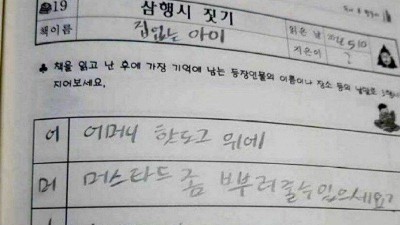 19 삼행시 짓기
책이름 집없는 아이 읽은 날
지은이 ?
♣ 책을 읽고 난 후에 가장 기억에 남는 등장인물의 이름이나 장소 등의 낱말로
지어보세요.
어 어머니 핫도그 위에
머 머스타드 좀 뿌려줄수있으세요?